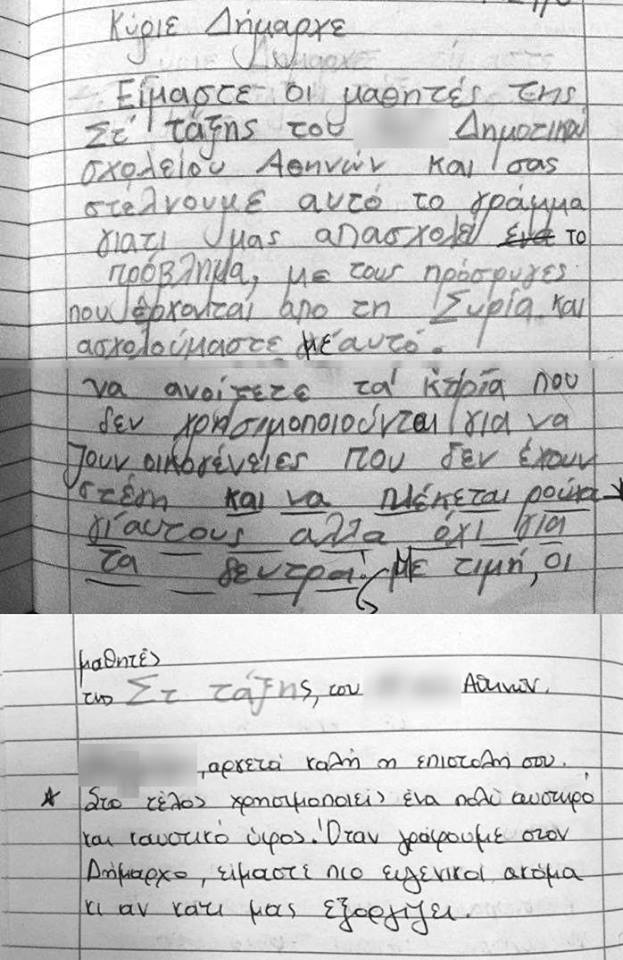 Κύριε Δήμαρχε
Είμαστε οι μαθητές της
Στ' τάξης του Δημοτικού
σχολείου Αθηνών και σας
στέλνουμε αυτό το γράμμα
γιατί μας απασχολεί ένα το
πρόβλημα, με τους πρόσφυγες
που έρχονται απο τη Συρία και
ασχολούμαστε με αυτό.
να ανοίγετε τα κτίρια που
δεν χρησιμοποιούνται για να
ζουν οικογένειες που δεν έχουν
στέγη και να πλέκεται ρούχα
γι'αυτους αλλα όχι για
τα δεντρα! Με τιμή, οι
μαθητές
της Στ τάξης, του Αθηνών.
, αρκετά καλή η επιστολή σου.
* Στο τέλος χρησιμοποιείς ένα πολύ αυστηρό
και καυστικό ύφος! Όταν γράφουμε στον
Δήμαρχο, είμαστε πιο ευγενικοί ακόμα
κι αν κάτι μας εξοργίζει.